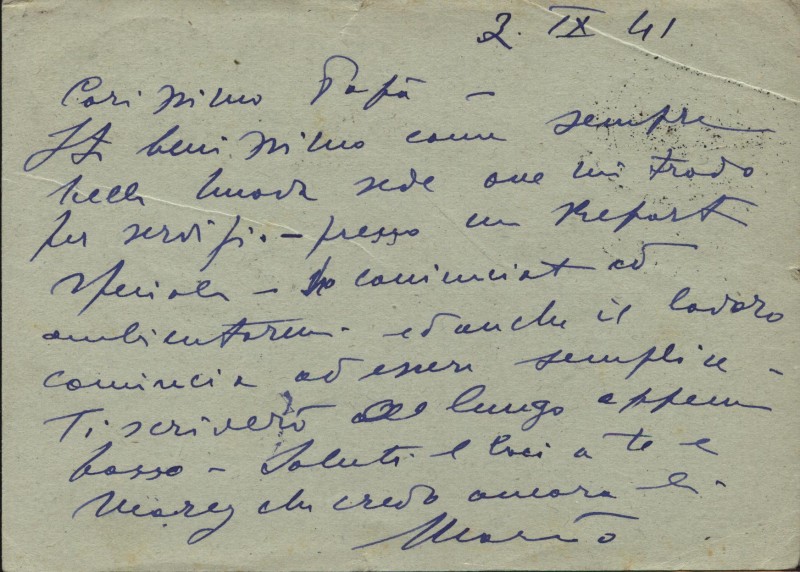 2. IX 41
Carissimo Papà -
Sto benissimo come sempre
nella nuova sede ove mi trovo
per servizi. - presso un Repart
speciale - ho cominciat ad
ambientarmi. ed anche il lavoro
comincia ad essere semplice -
Ti scriverò a lungo appena
posso - Saluti e baci a te e
Mary che credo ancora lì.
Mario